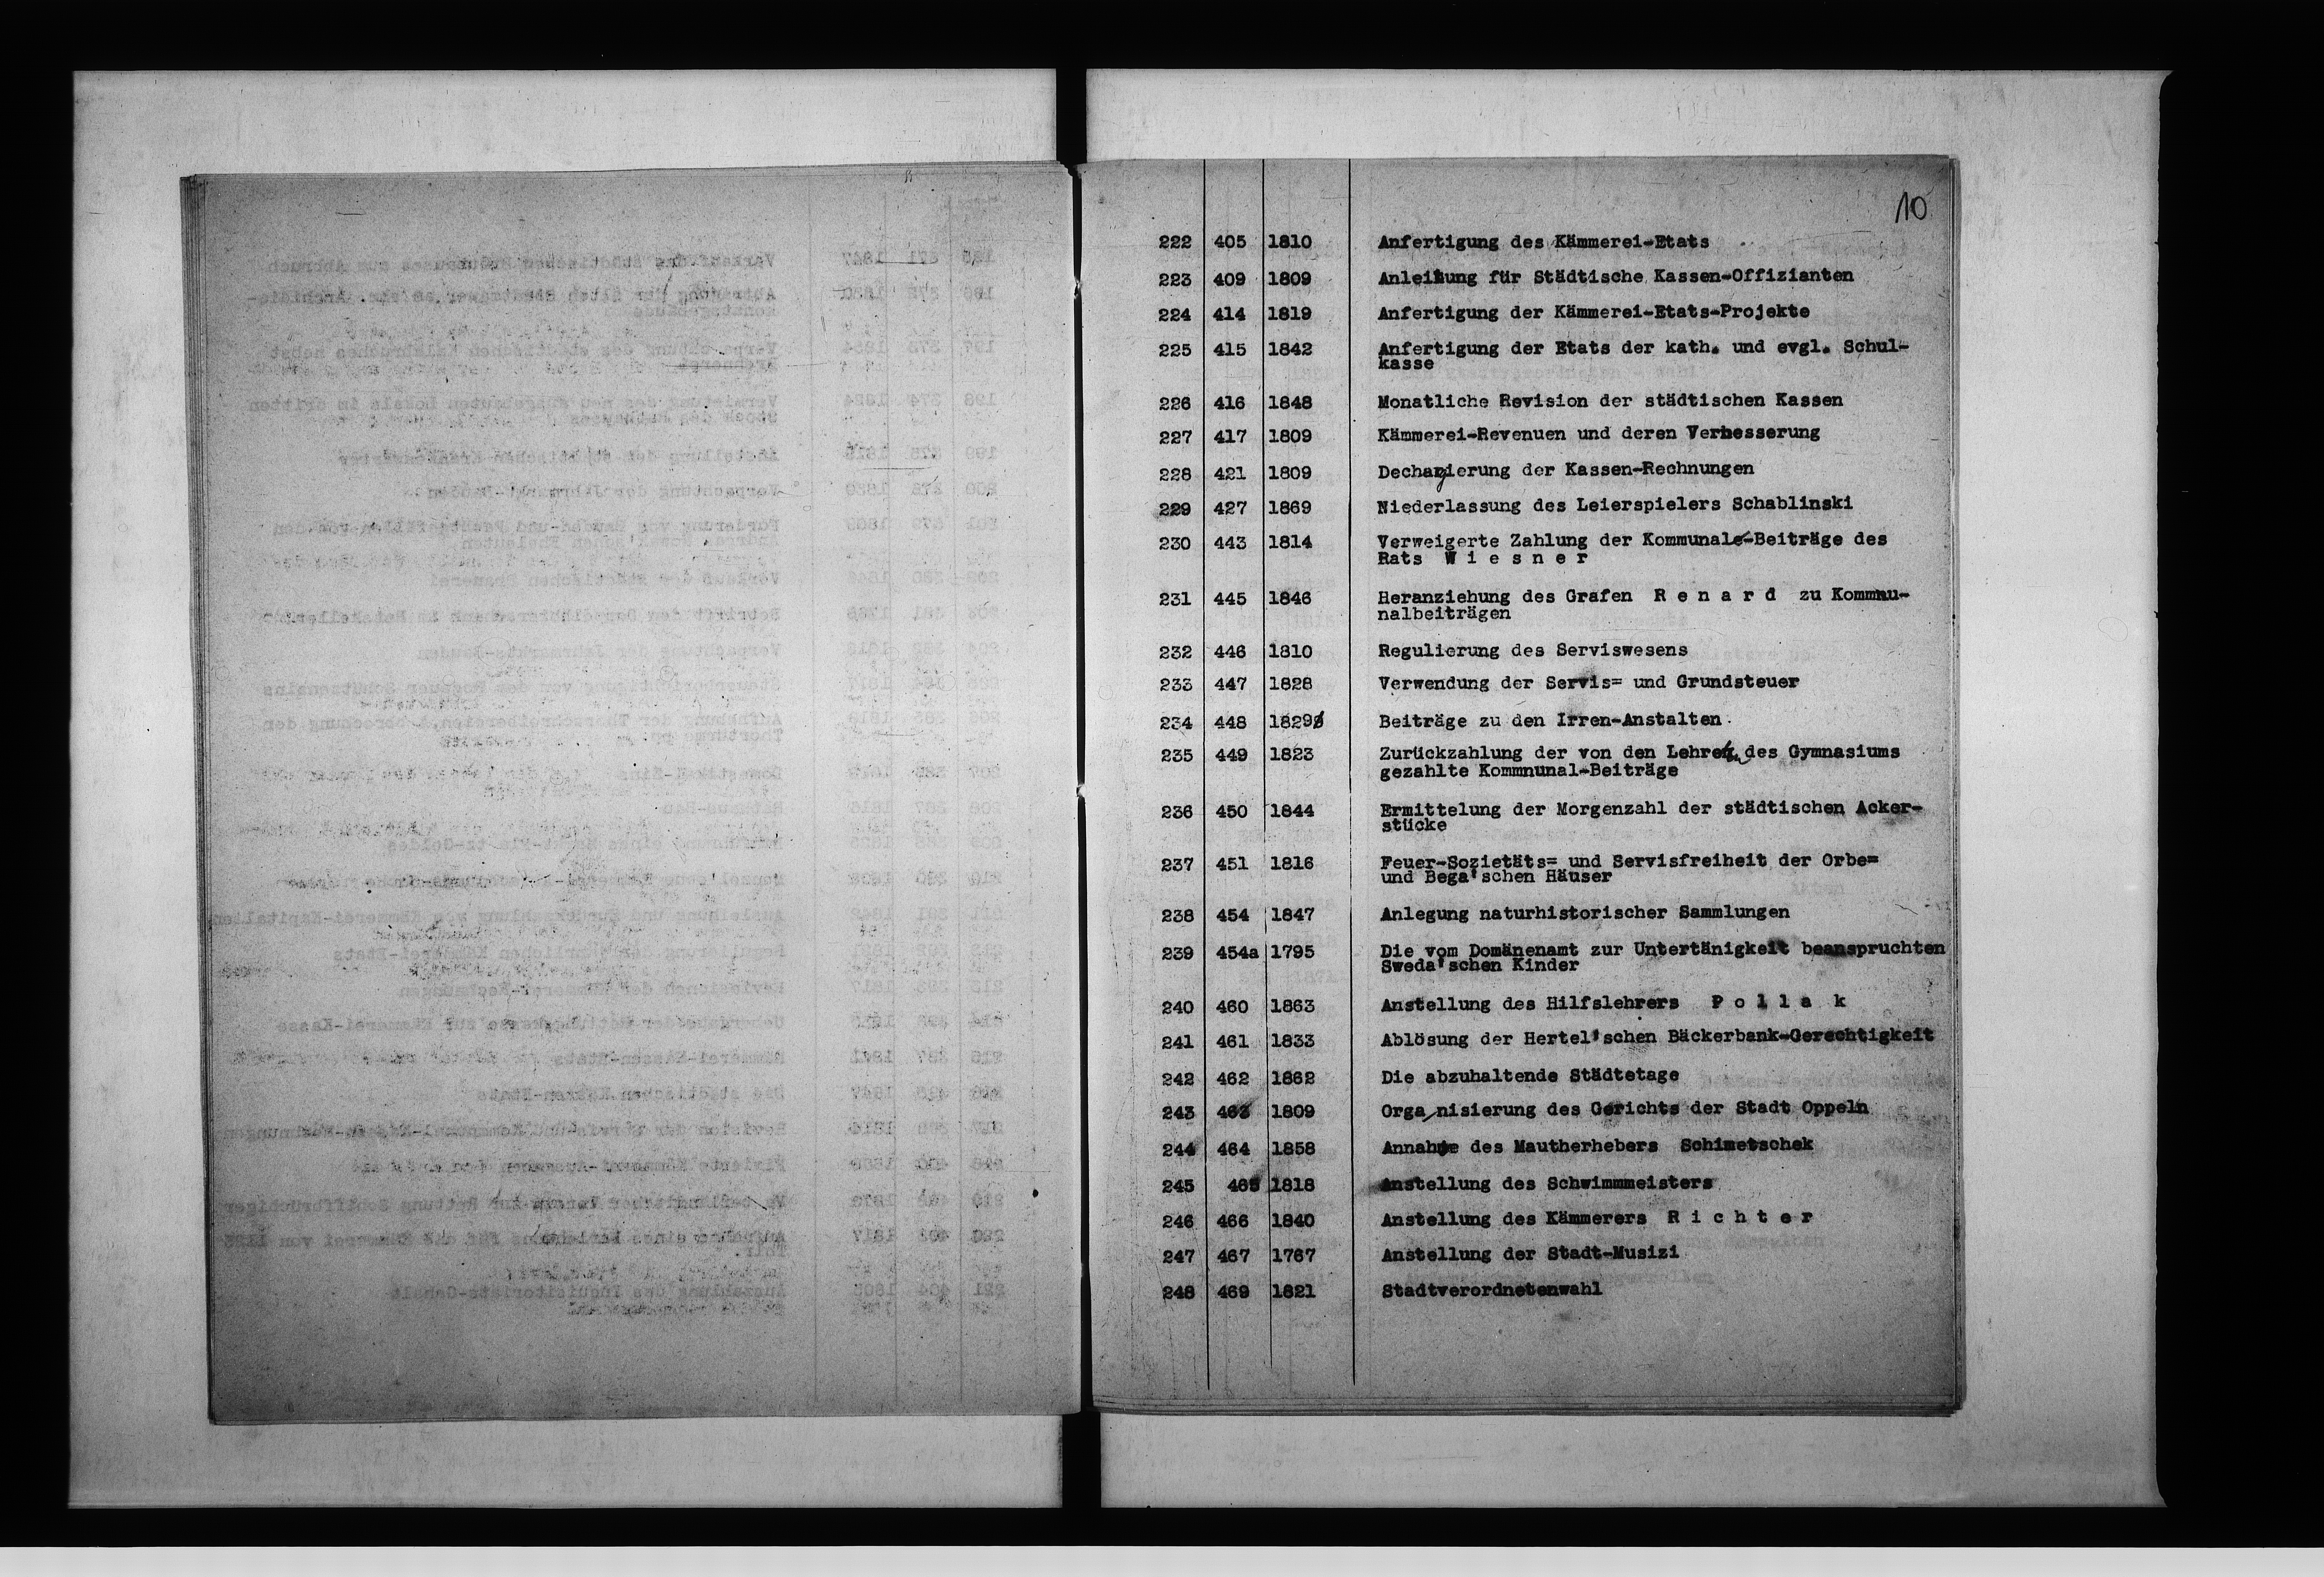 10
222 405 1810 Anfertigung des Kämmerei-Etats
223 409 1809 Anleitung für Städtische Kassen-Offizianten
224 414 1819 Anfertigung der Kämmerei-Etats-Projekte
225 415 1842 Anfertigung der Etats der kath. und evgl. Schul-
kasse
226 416 1848 Monatliche Revision der städtischen Kassen
227 417 1809 Kämmerei-Revenuen und deren Verbesserung
228 421 1809 Dechargierung der Kassen-Rechnungen
229 427 1869 Niederlassung des Leierspielers Schablinski
230 443 1814 Verweigerte Zahlung der Kommunal-Beiträge des
Rats W i e s n e r
231 445 1846 Heranziehung des Grafen R e n a r d zu Kommnu-
nalbeiträgen
232 446 1810 Regulierung des Serviswesens
233 447 1828 Verwendung der Servis= und Grundsteuer
234 448 1829 Beiträge zu den Irren-Anstalten
235 449 1823 Zurückzahlung der von den Lehrern des Gymnasiums
gezahlte Kommnunal-Beiträge
236 450 1844 Ermittelung der Morgenzahl der städtischen Acker-
stücke
237 451 1816 Feuer-Sozietäts= und Servisfreiheit der Orbe=
und Bega'schen Häuser
238 454 1847 Anlegung naturhistorischer Sammlungen
239 454a 1795 Die vom Domänenamt zur Untertänigkeit beanspruchten
Sweda'schen Kinder
240 460 1863 Anstellung des Hilfslehrers P o l l a k
241 461 1833 Ablösung der Hertel'schen Bäckerbank-Gerechtigkeit
242 462 1862 Die abzuhaltende Städtetage
243 463 1809 Organisierung des Gerichts der Stadt Oppeln
244 464 1858 Annahme des Mautherhebers Schimetschek
245 465 1818 Anstellung des Schwimmmeisters
246 466 1840 Anstellung des Kämmerers R i c h t e r
247 467 1767 Anstellung der Stadt-Musizi
248 469 1821 Stadtverordnetenwahl